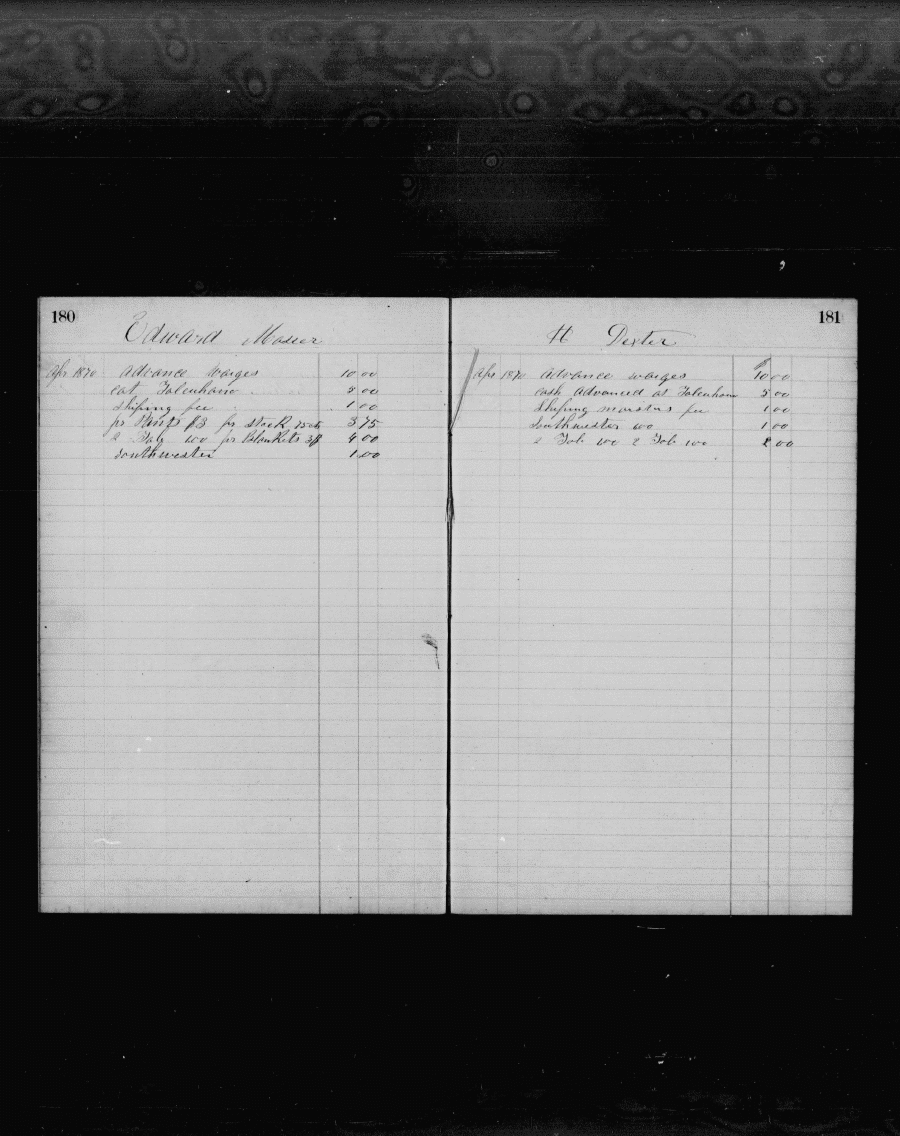 180
Edward
Apr 1870 Advance Warges 10 00
eat Tolenhamo 5 00
Shiping fee 1 00
pr Pants $3 pr Stock 75cts 3 75
2 Tob 100 pr Blankets 3$ 4 00
Southwester 1 00
181
H Dexter
Apr 1870 Advance warges 10 00
cash Advanced at Tolenham 5 00
Shiping masters fee 1 00
Southwester 100 1 00
2 Tob 100 2 Tob 100 2 00